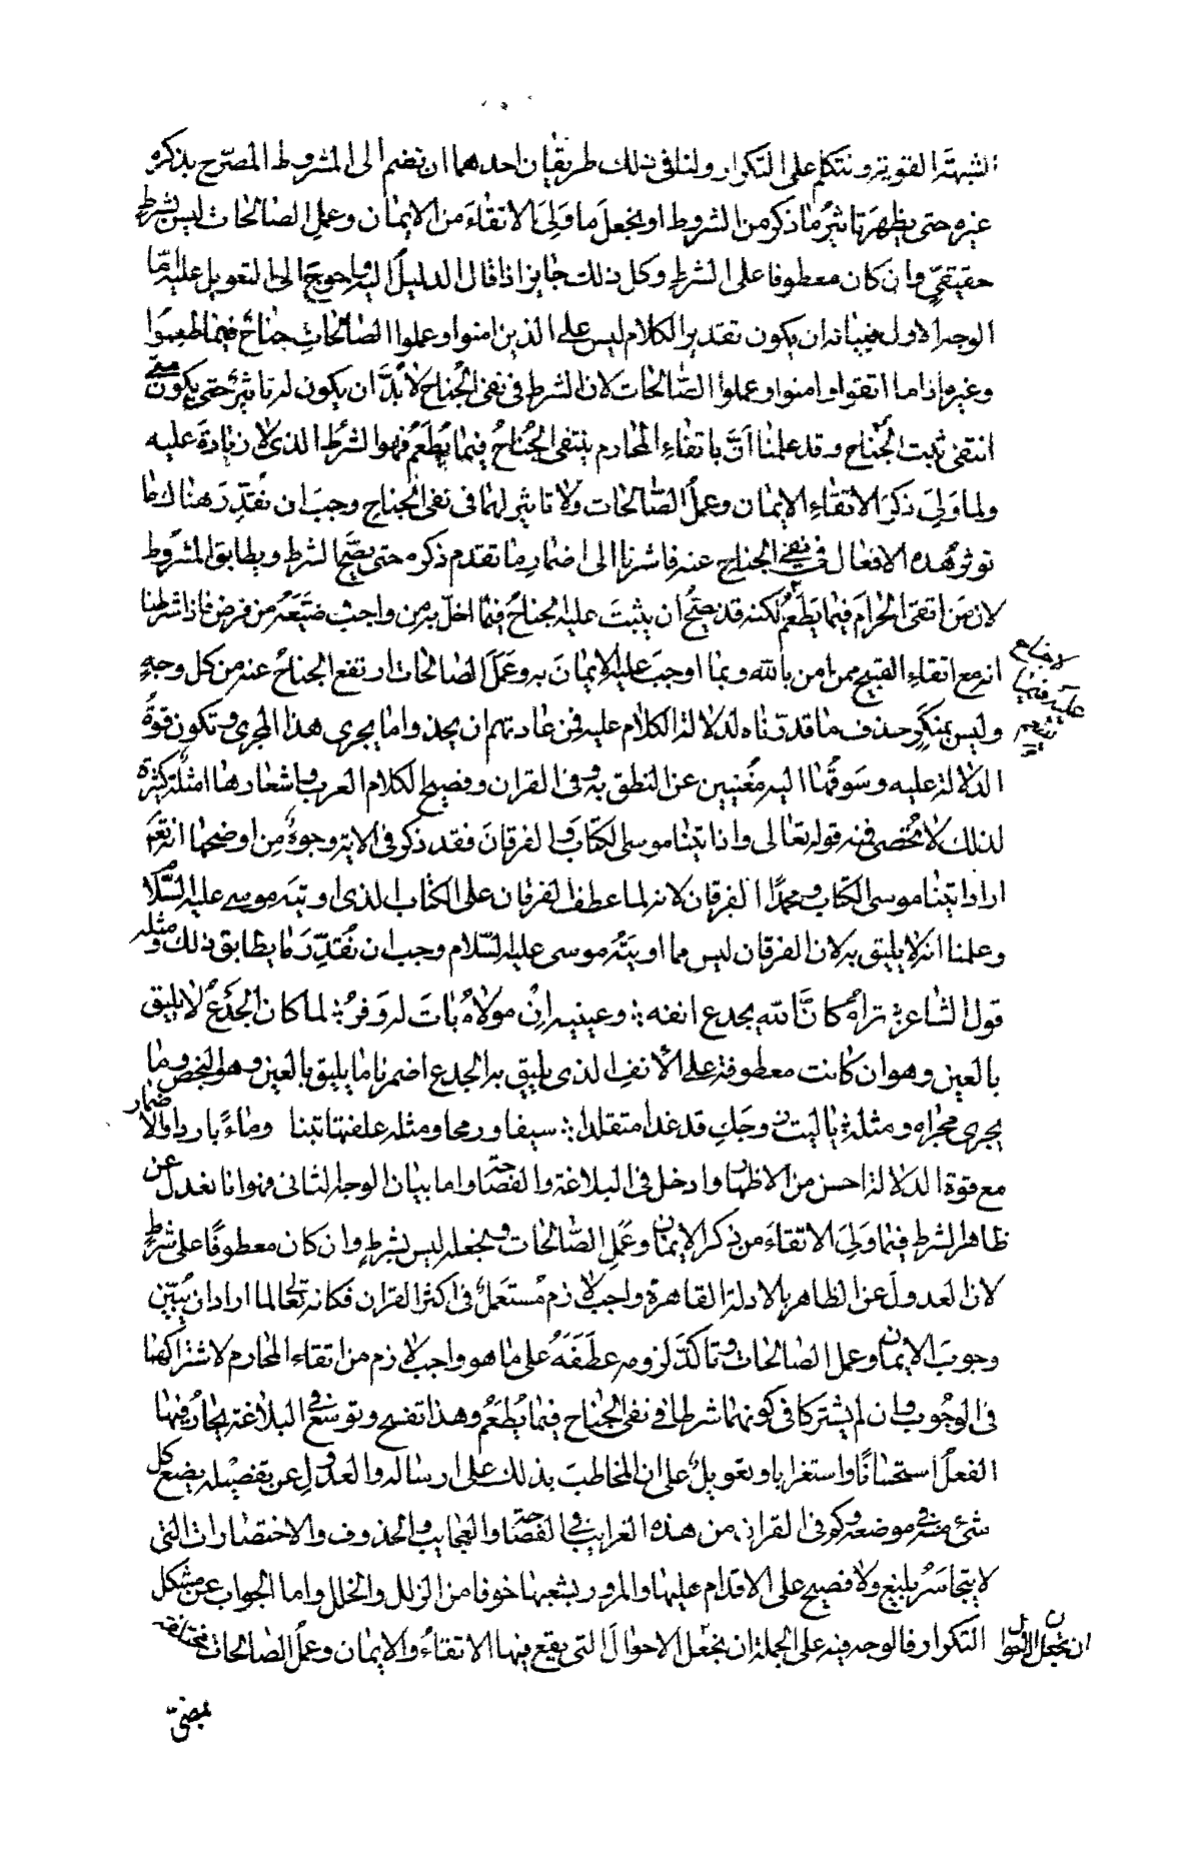 الشبهة القوية ونتكلم على التكرار ولنا في ذلك طريقان احدهما ان نضم الى المشروط المصرّح بذكره
غيره حتى يظهر تاثيرُ ما ذكر من الشروط او نجعلَ ما وَلِيَ الاتقاءَ من الايمان وعملِ الصالحات ليس بشرطٍ
حقيقىٍّ وان كان معطوفا على الشرطِ وكل ذلك جايز اذا قال الدليلُ اليه واحوج الى التعويل عليه امّا
الوجه الاول فبيانه ان يكون تقدير الكلام ليس على الذين امنوا وعملوا الصالحاتِ جناحٌ فيما طعموا
وغيره إذا ما اتقوا وامنوا وعملوا الصّالحات لان الشرط في نفى الجُناحِ لابُدَّ ان يكون له تاثيرٌ حتى يكون متى
انتفى ثبت الجُناح وقد علمنا اَنَّ باتقاءِ المحارم ينتفى الجُناحُ فيما يُطعَمُ فهو الشرطُ الذى لا زيادةَ عليه
ولما وَلِىَ ذكرَ الاتقاءِ الايمان وعملُ الصّالحات ولا تاثير لهما فى نفى الجناحِ وجبَ ان نُقدِّرَ هناك ما
توثر هذه الافعال في نفى الجناح عنه فاشرنا الى اضمارِ ما تقدم ذكره حتى يصحَّ الشرط ويطابق المشروط
لان من اتقى الحرامَ فيما يَطعَمُ لكنه قد يصحُّ ان يثبتَ عليه الجناحُ فيما اخلّ به من واجبٍ وضيّعَهُ من فرض فاذا شرطنا
انه مع اتقاءِ القبيح ممن امن بالله وبما اوجبَ عليه الايمانَ به وعَمَلَ الصالحات ارتفع الجناحُ عنه من كل وجهٍ
وليس بمنكرٍ حذف ما قدّرناه لدلالة الكلام عليه فمن عادتهم ان يحذفوا ما يجرى هذا المجرى وتكون قوةُ
الدلالة عليه وسَوقُها اليه مُغنيين عن النطق به وفى القران وفصيح الكلام العرب واشعارها امثلة كثيرة
لذلك لا تُحصى فمنه قوله تعالى واذ اتينا موسى الكتابَ والفرقانَ فقد ذكر فى الاية وجوهٌ مِن اوضحها انه تعَ
اراد اتينا موسى الكتاب ومحمدًا الفرقان لانه لما عطف الفرقان على الكتاب الذى اوتيه موسى عليه السّلام
وعلمنا انه لا يليق به لان الفرقان ليس مما اوتيَهُ موسى عليه السّلام وجب ان نُقدِّرَ ما يطابق ذلك ومثله
قول الشاعر تراهُ كانَّ الله يجدع انفه وعينيه انْ مولاهُ باتَ له وَفرُ لما كان الجَدْعُ لا يليق
بالعين وهو ان كانت معطوفة على الانفِ الذى يليق به الجدع اضمرنا ما يليق بالعين وهو البخص وما
يجرى مجراه ومثله يا ليت زوجكِ قد غدا متقلدا سيفا ورمحا ومثله علفتها تبنا وماءً باردا والاضمار
مع قوة الدلالة احسن من الاظهار وادخل فى البلاغة والفصاحة واما بيان الوجه الثانى فهو اَنا نعدل عن
ظاهر الشرط فيما وَلِىَ الاتقاءَ من ذكر الايمان وعَمَلِ الصّالحات ونجعله ليس بشرطٍ وان كان معطوفًا على شرطٍ
لان العدولَ عن الظاهر بالادلة القاهرة واجبٌ لازم مُستعمَلٌ فى اكثر القران فكانه تعالى لما اراد ان يُبيّن
وجوبَ الايمان وعمل الصالحات وتاكّدَ لزومه عطَفَهُ على ما هو واجب لازم من اتقاء المحارم لاشتراكهما
فى الوجُوب وان لم يشتركا فى كونهما شرطا فى نفى الجُناح فيما يُطعَمُ وهذا تفسح وتوسّع فى البلاغة يَحارُ فيها
الفعلُ استحسانًا واستغرابا وتعويلٌ على ان المخاطبَ بذلك على ارساله والعدولِ عن تفصيله يضع كل
شئ منه فى موضعه وكم فى القران من هذه الغرايب فى الفصاحة والعجايب والحذوف والاختصارات التى
لا يتجاسرُ بليغ ولا فصيح على الاقدام عليها والمرور بشعبها خوفا من الزلل والخلل واما الجواب عن مشكل
التكرار فالوجه فيه على الجملة ان نجعل الاحوالَ التى يقع فيها الاتقاءُ والايمان وعملُ الصالحات مختلفه
لا جناح
عليه فيما
يطعم